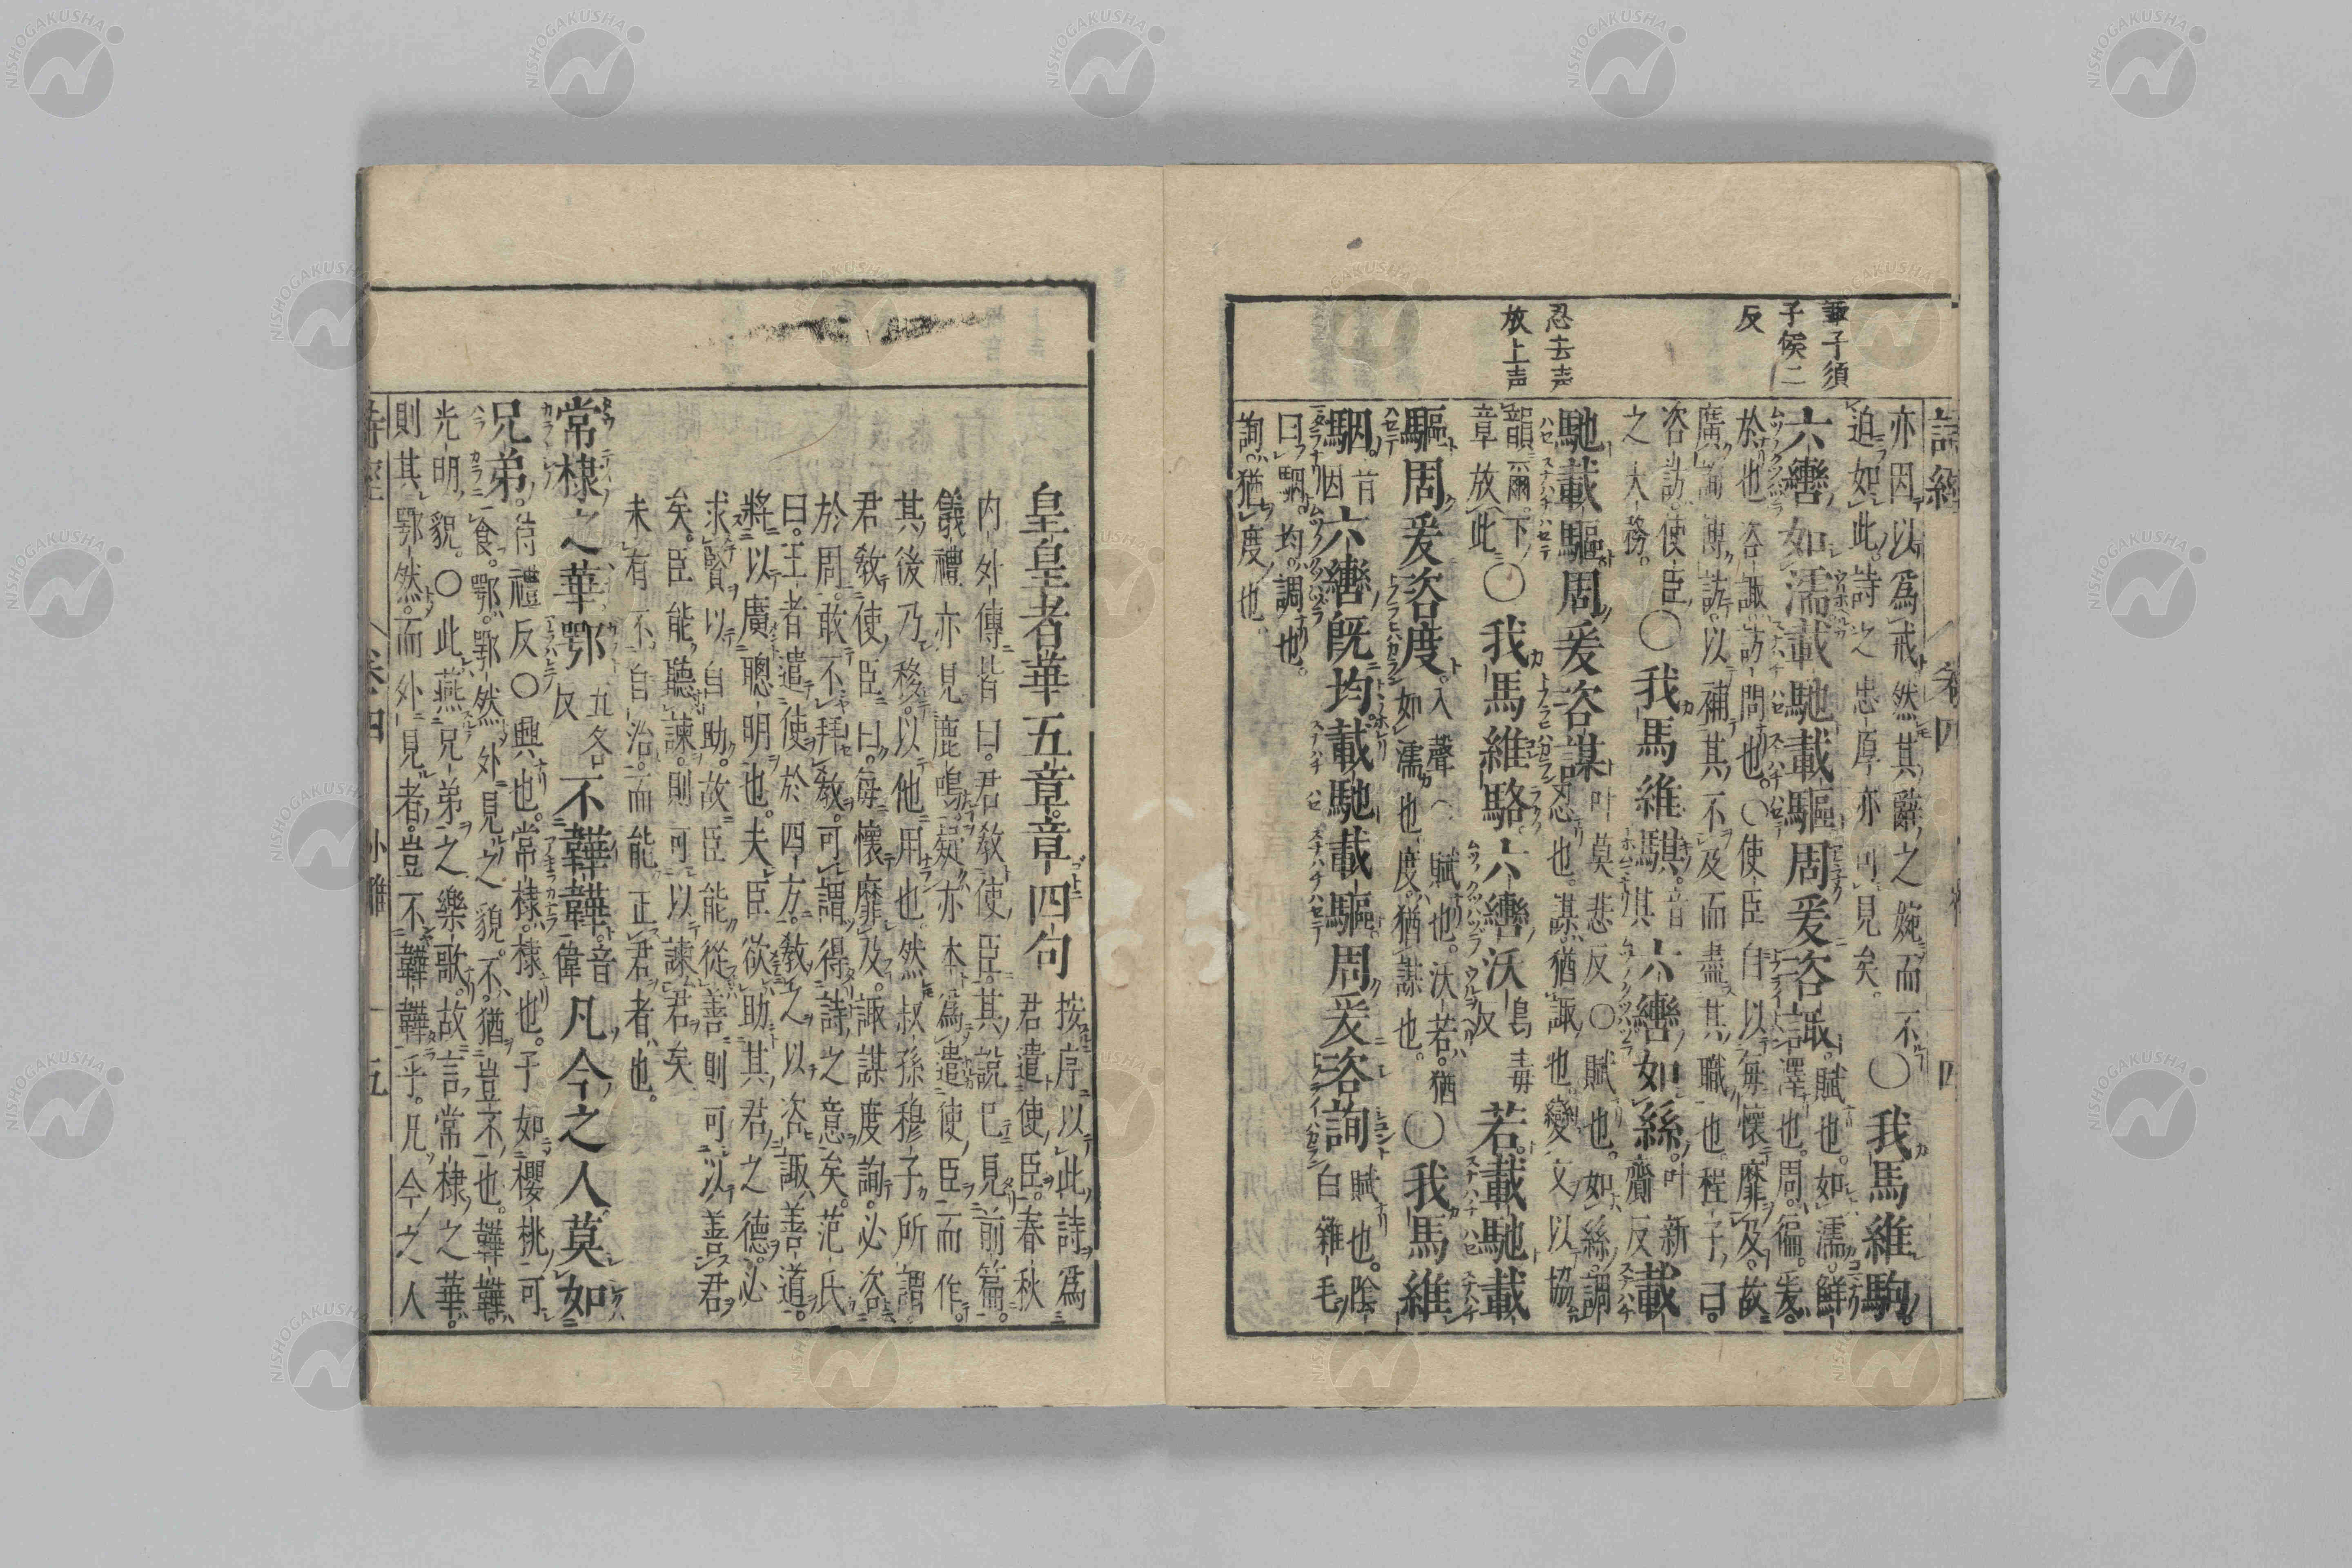 諏子須
子候二
反
忍去声
放上声
詩經 卷四 四
亦因以爲戒然其辭之婉而不
迫如此詩之忠厚亦可見矣。
〇我馬維駒。
六轡如濡載馳載驅周爰咨諏。
賦也。如濡。鮮
澤也。周。徧。爰。
於也咨諏訪問也。〇使臣自以每懷靡及。故
廣詢博訪。以補其不及而盡其職也程子曰。
咨訪。使臣
之大務。
〇我馬維騏。音其六轡如絲。叶新齎反載
馳載驅周爰咨謀
叶莫悲反〇賦也。如絲調
忍也。謀猶諏也。變文以協
韻爾。下
章放此
〇我馬維駱。六轡沃烏毒反若。載馳載
驅周爰咨度。
入聲〇賦也。沃若。猶
如濡也度。猶謀也。
〇我馬維
駰。音因六轡既均。載馳載驅。周爰咨詢
賦也。陰
白雜毛
曰駰。均。調也。
詢。猶度也。
皇皇者華五章章四句
按序以此詩爲
君遣使臣。春秋
內外傳皆曰。君教使臣。其說已見前篇。
儀禮亦見鹿鳴。疑亦本爲遣使臣而作。
其後乃移。以他用也。然叔孫穆子所謂
君教使臣曰。每懷靡及。諏謀度詢。必咨
於周。敢不拜教。可謂得詩之意矣。范氏
曰。王者遣使於四方。教之以咨諏善道。
將以廣聰明也。夫臣欲助其君之德。必
求賢以自助。故臣能從善則可以善君
矣。臣能聽諫。則可以諫君矣
未有不自治。而能正君者也。
常棣之華鄂五各反不韡韡。音偉凡今之人莫如
兄弟。
待禮反〇興也。常棣。棣也。子如櫻桃可
食。鄂。鄂然外見之貌。不。猶豈不也。韡韡。
光明貌。〇此燕兄弟之樂歌。故言常棣之華。
則其鄂然。而外見者。豈不韡韡乎。凡今之人
詩經 卷四 小雅 十五